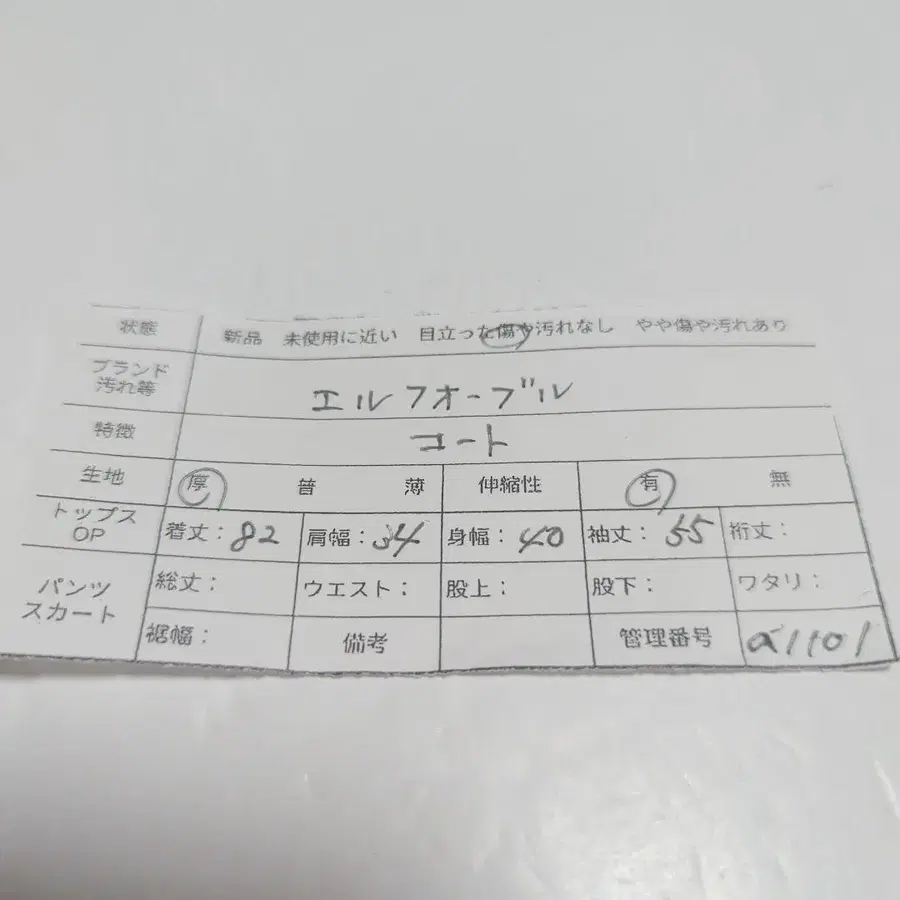 状態 新品 未使用に近い 目立った傷や汚れなし やや傷や汚れあり
ブランド
汚れ等 エルフオーブル
特徴 コート
生地 厚 普 薄 伸縮性 有 無
トップス
OP 着丈：82 肩幅：34 身幅：40 袖丈：55 裄丈：
パンツ
スカート 総丈： ウエスト： 股上： 股下： ワタリ：
裾幅： 備考 管理番号 a1101